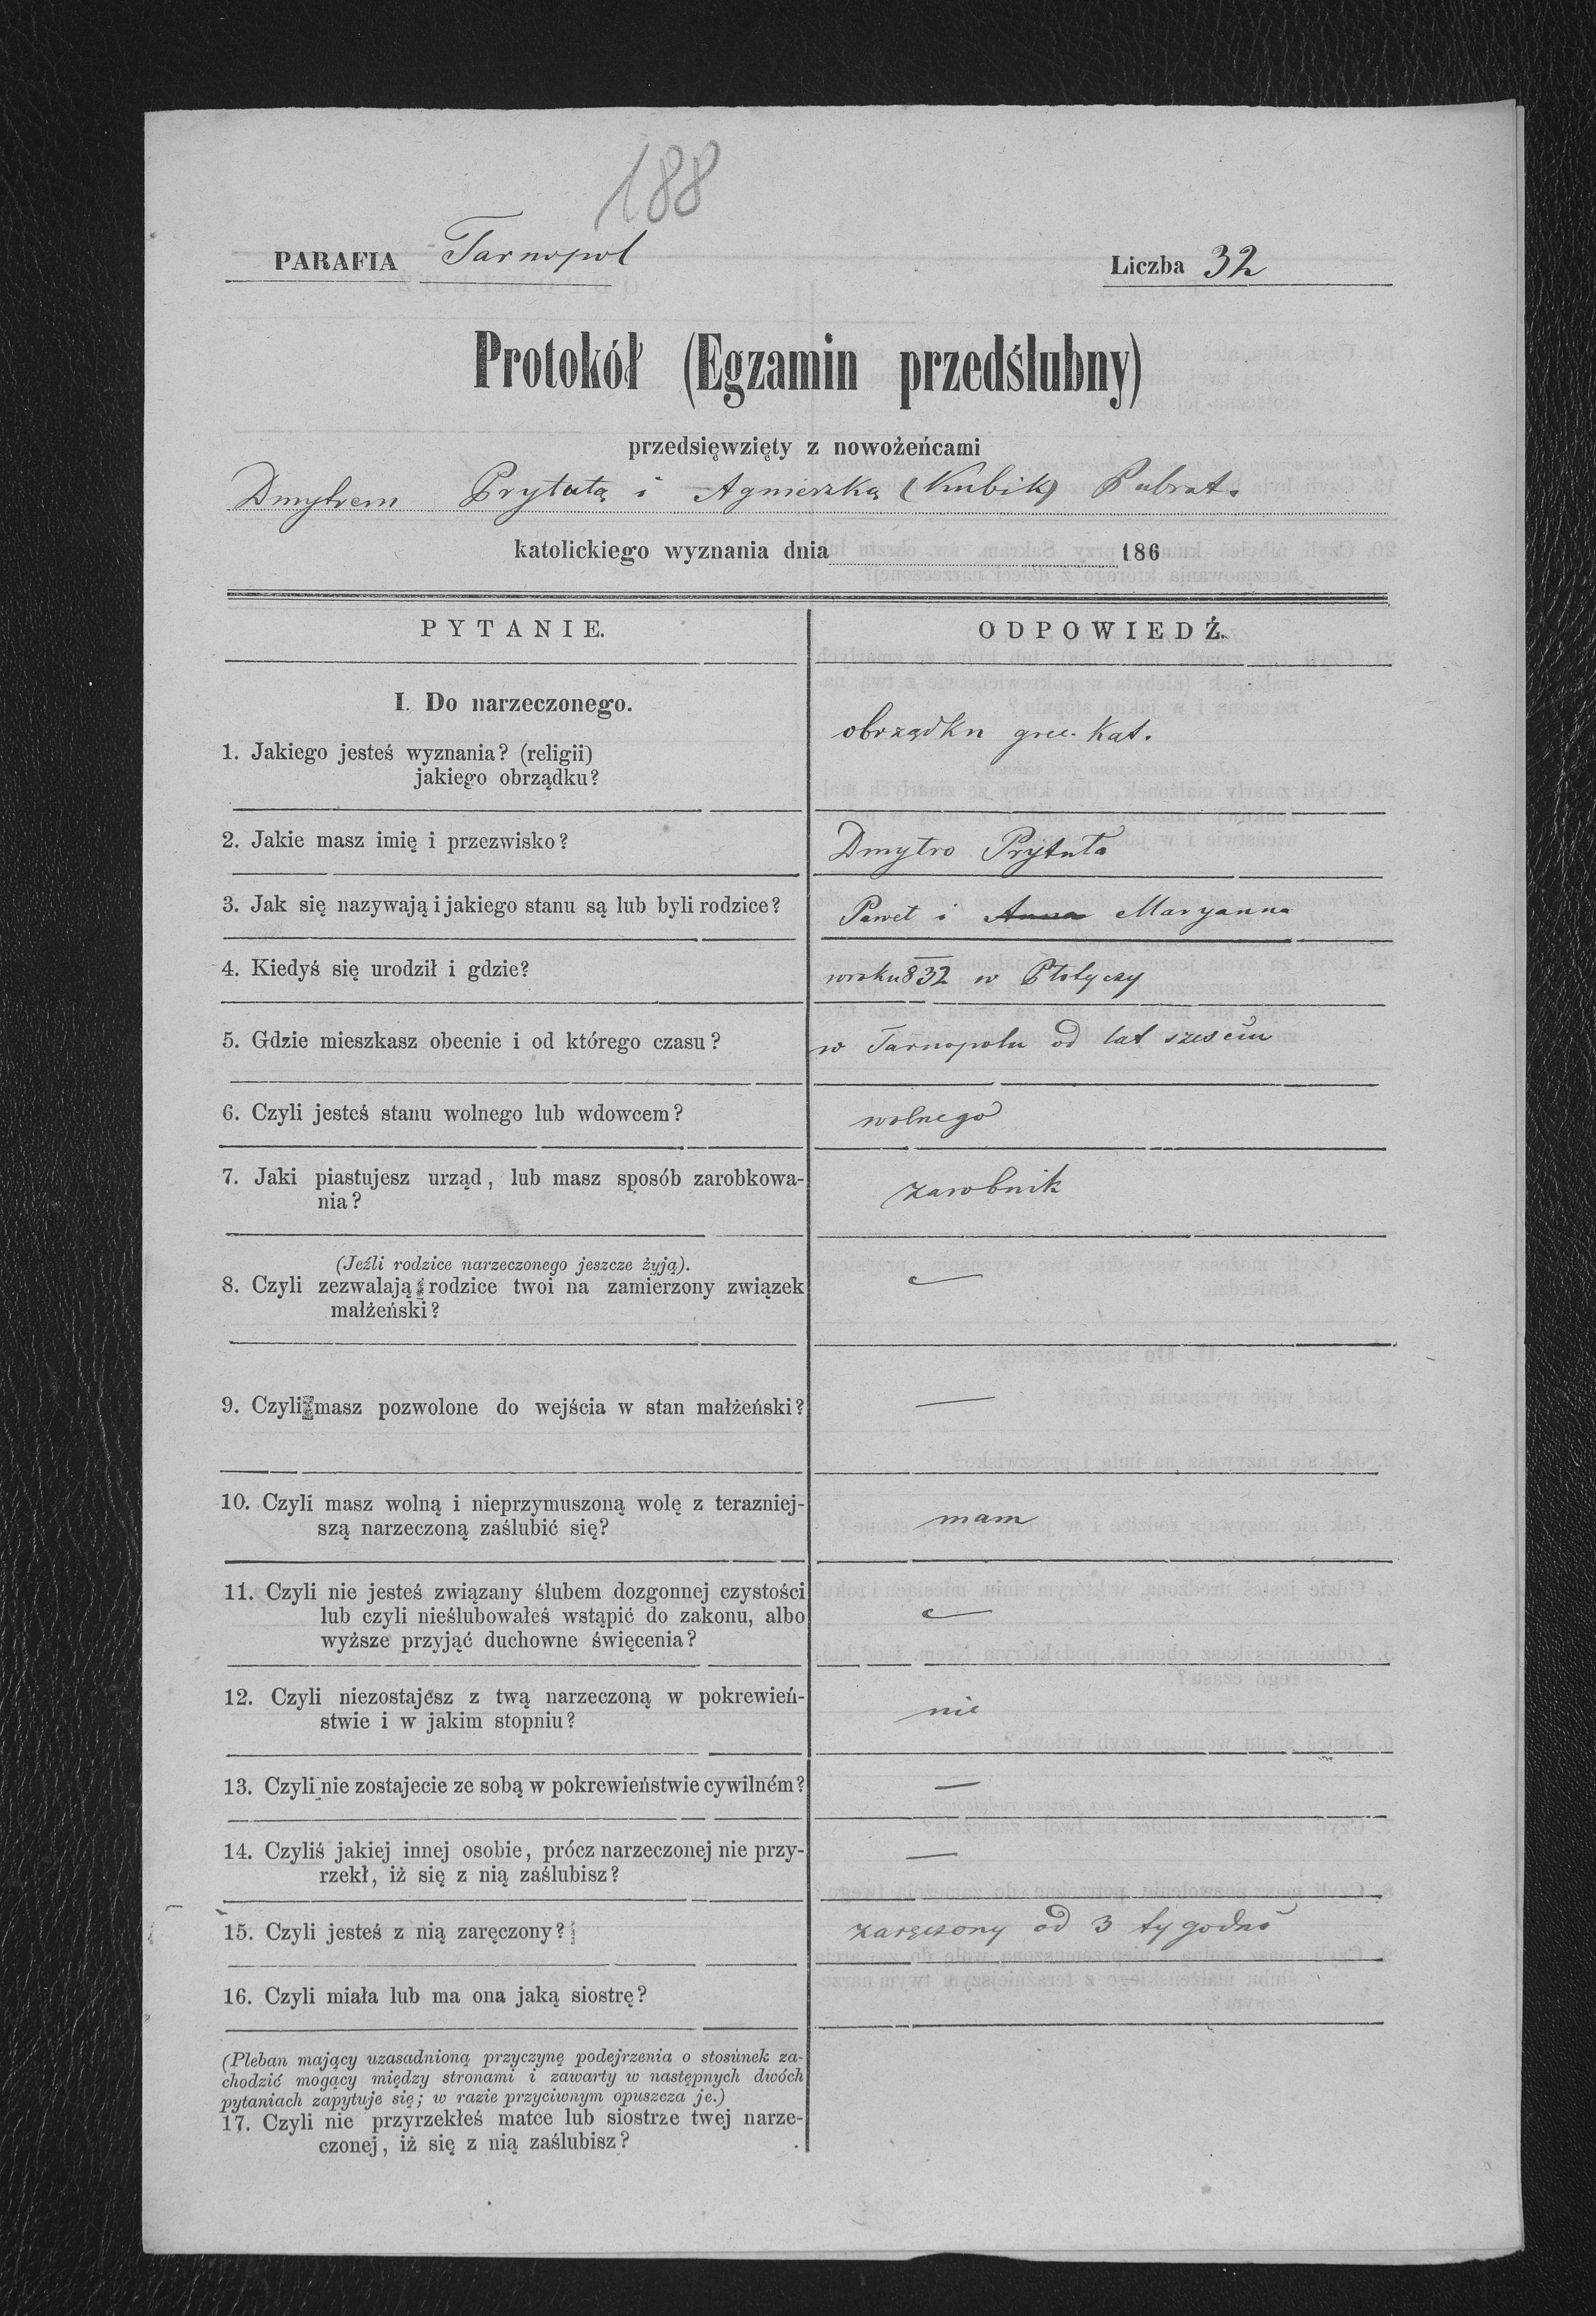 188
PARAFIA Tarnopol
Liczba 32
Protokół (Egzamin przedślubny)
przedsięwzięty z nowożeńcami
Dmytrem Prytułą i Agnieszką (Kubik) Pubrat.
katolickiego wyznania dnia 186
PYTANIE.
ODPOWIEDŹ.
I. Do narzeczonego.
1. Jakiego jesteś wyznania? (religii)
jakiego obrządku?
obrządku grec. Kat.
2. Jakie masz imię i przezwisko?
Dmytro Prytuła
3. Jak się nazywają i jakiego stanu są lub byli rodzice?
Paweł i Anna Maryanna
4. Kiedyś się urodził i gdzie?
w roku 832 w Płotyczy
5. Gdzie mieszkasz obecnie i od którego czasu?
w Tarnopolu od lat sześciu
6. Czyli jesteś stanu wolnego lub wdowcem?
wolnego
7. Jaki piastujesz urząd, lub masz sposób zarobkowa-
nia?
zarobnik
(Jeźli rodzice narzeczonego jeszcze żyją).
8. Czyli zezwalają rodzice twoi na zamierzony związek
małżeński?
—
9. Czyli masz pozwolone do wejścia w stan małżeński?
—
10. Czyli masz wolną i nieprzymuszoną wolę z terazniej-
szą narzeczoną zaślubić się?
mam
11. Czyli nie jesteś związany ślubem dozgonnej czystości
lub czyli nieślubowałeś wstąpić do zakonu, albo
wyższe przyjąć duchowne święcenia?
—
12. Czyli niezostajesz z twą narzeczoną w pokrewień-
stwie i w jakim stopniu?
nie
13. Czyli nie zostajecie ze sobą w pokrewieństwie cywilném?
—
14. Czyliś jakiej innej osobie, prócz narzeczonej nie przy-
rzekł, iż się z nią zaślubisz?
—
15. Czyli jesteś z nią zaręczony?
zaręczony od 3 tygodni
16. Czyli miała lub ma ona jaką siostrę?
(Pleban mający uzasadnioną przyczynę podejrzenia o stosunek za-
chodzić mogący między stronami i zawarty w następnych dwóch
pytaniach zapytuje się; w razie przyciwnym opuszcza je.)
17. Czyli nie przyrzekłeś matce lub siostrze twej narze-
czonej, iż się z nią zaślubisz?